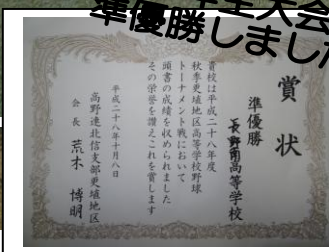 主大会
準優勝しまし
賞状
準優勝
長野南高等学校
貴校は平成二十八年度
秋季更埴地区高等学校野球
トーナメント戦において
頭書の成績を収められました
その栄誉を讃えこれを賞します
平成二十八年十月八日
高野連北信支部更埴地区
会長 荒木 博明